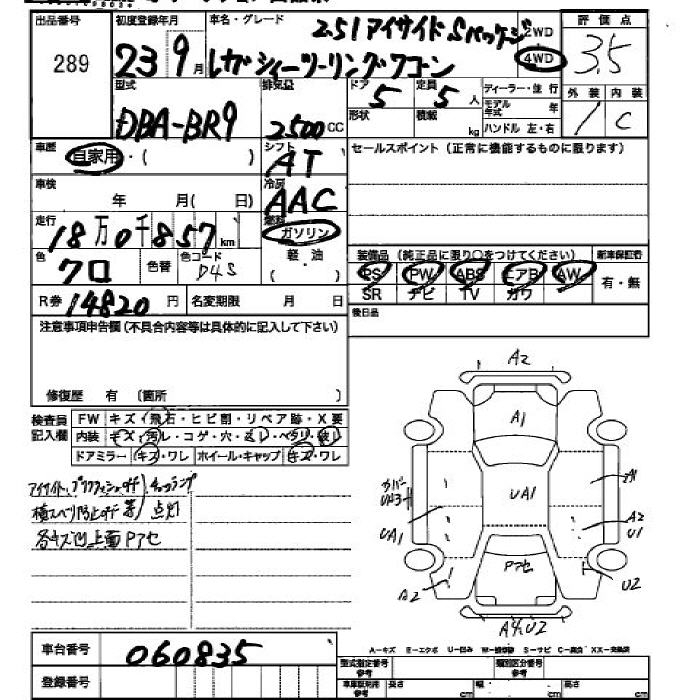 出品番号 初度登録年月 車名・グレード 2.5I アイサイド Sパッケージ 2WD 評価点
289 23 9月 レガシィツーリングワゴン 4WD 3.5
型式 排気量 ドア 定員 ディーラー・並行 外装 内装
DBA-BR9 2500cc 5 5人 モデル年式 年 / C
形状 積載 kg ハンドル 左・右
車歴 自家用・( ) シフト AT セールスポイント(正常に機能するものに限ります)
車検 年 月(日) 冷房 AAC
走行 18万0千857km 燃料 ガソリン
色 クロ 色替 色コード D4S 軽・油 ( )
装備品(純正品に限り○をつけてください) 新車保証書
PS PW ABS エアB AW 有・無
SR ナビ TV カワ
R券 14820円 名変期限 月 日 後日品
注意事項申告欄(不具合内容等は具体的に記入して下さい)
修復歴 有 (箇所 )
検査員記入欄 FW キズ・飛石・ヒビ割・リペア跡・X要
内装 キズ・汚レ・コゲ・穴・ ・ベタリ・
ドアミラー キズ・ワレ ホイール・キャップ キズ・ワレ
アイサイト、 チェックランプ
横スベリ防止off等 点灯
各キズ凹 上面Pアセ
A2
A1
カバー
A1
UA1
UA1
A2
U1
Pアセ
A2
U2
A4U2
車台番号 060835
A-キズ E-エクボ U-凹み S-サビ
登録番号
型式指定番号 参考 類別区分番号 参考
長さ cm 幅 cm 高さ cm